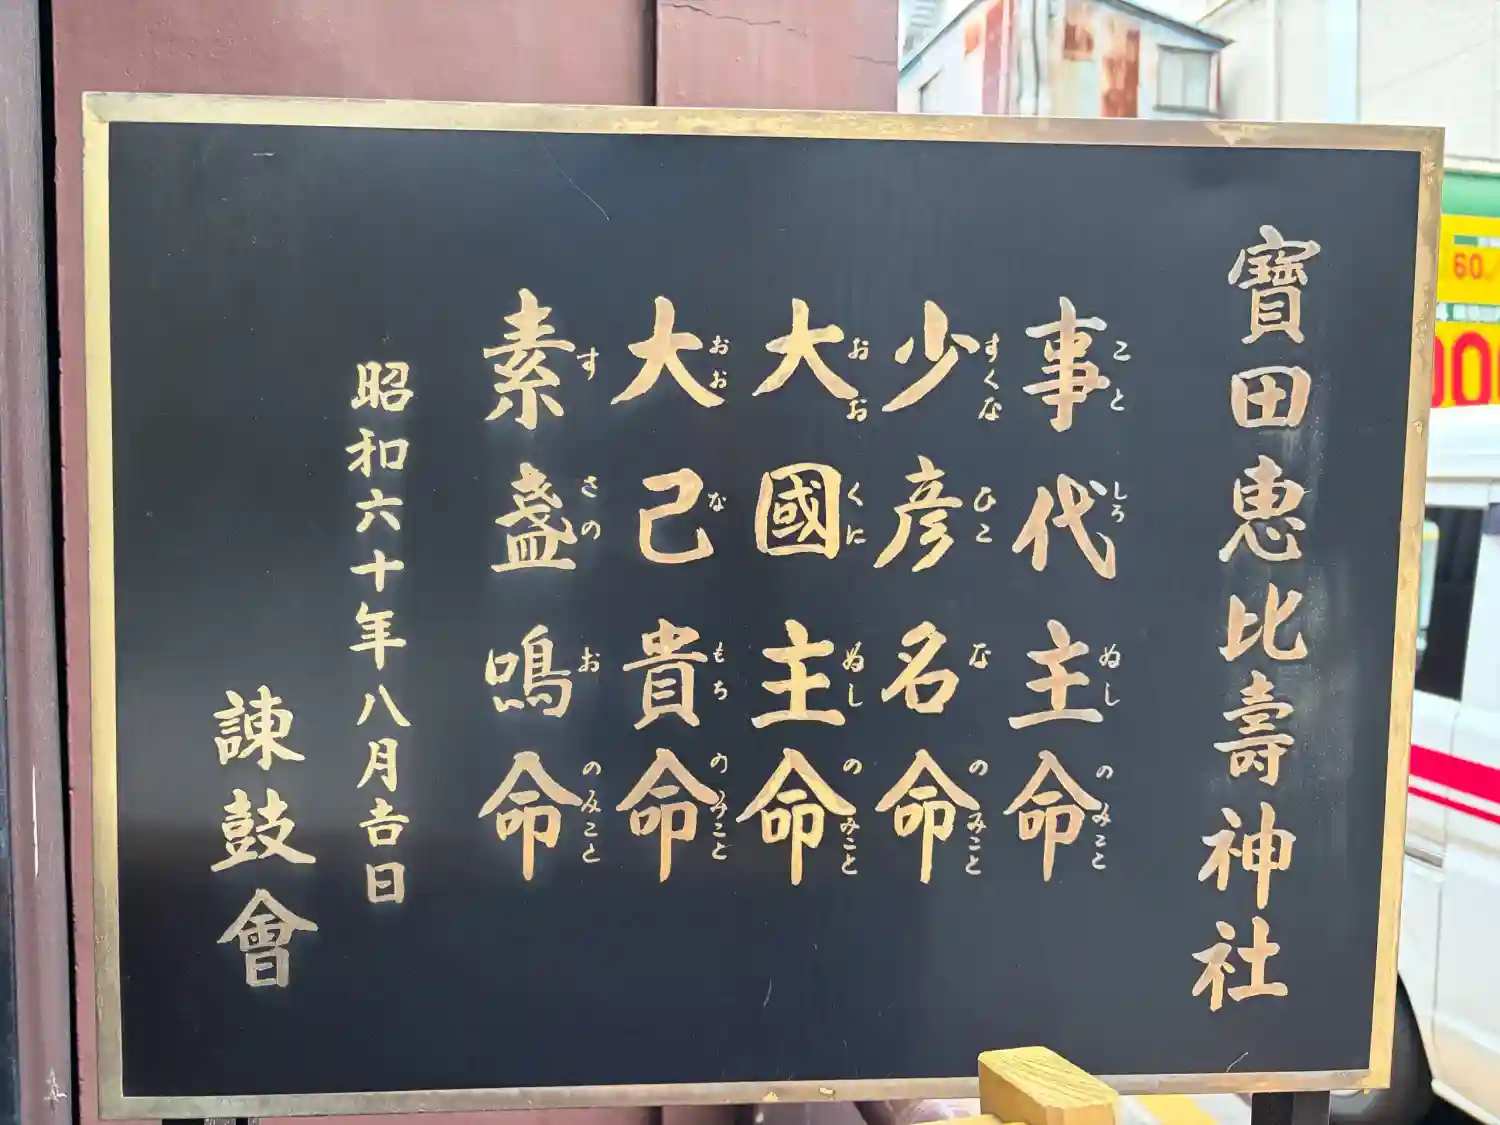 寶田恵比壽神社
事代主命
ことしろぬしのみこと
少彦名命
すくなひこなのみこと
大國主命
おおくにぬしのみこと
大己貴命
おおなもちのみこと
素盞鳴命
すさのおのみこと
昭和六十年八月吉日
諌鼓會
60